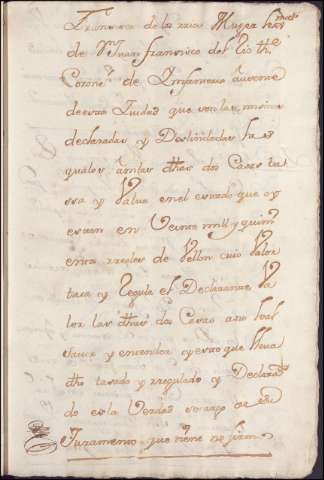 Francisca de la rua Muger
de Dn Juan francisco del Rio thte
Coronl de Ymfanteria
de esta Ciudad que son las mismas
declaradas y Deslindadas las
quales ambas dhas dos Casas ta
sa y Valua en el estado que oy
estan en Veinte mill y quini
entos rreales de Vellon cuio Valor
tasa y Regula el Declarante Va
ler las dhas dos Casas a su leal
sauer y entender y esto que lleua
dho tasado y rregulado y Declara
do es la Verdad so cargo de su
Juramento que tiene no firmo